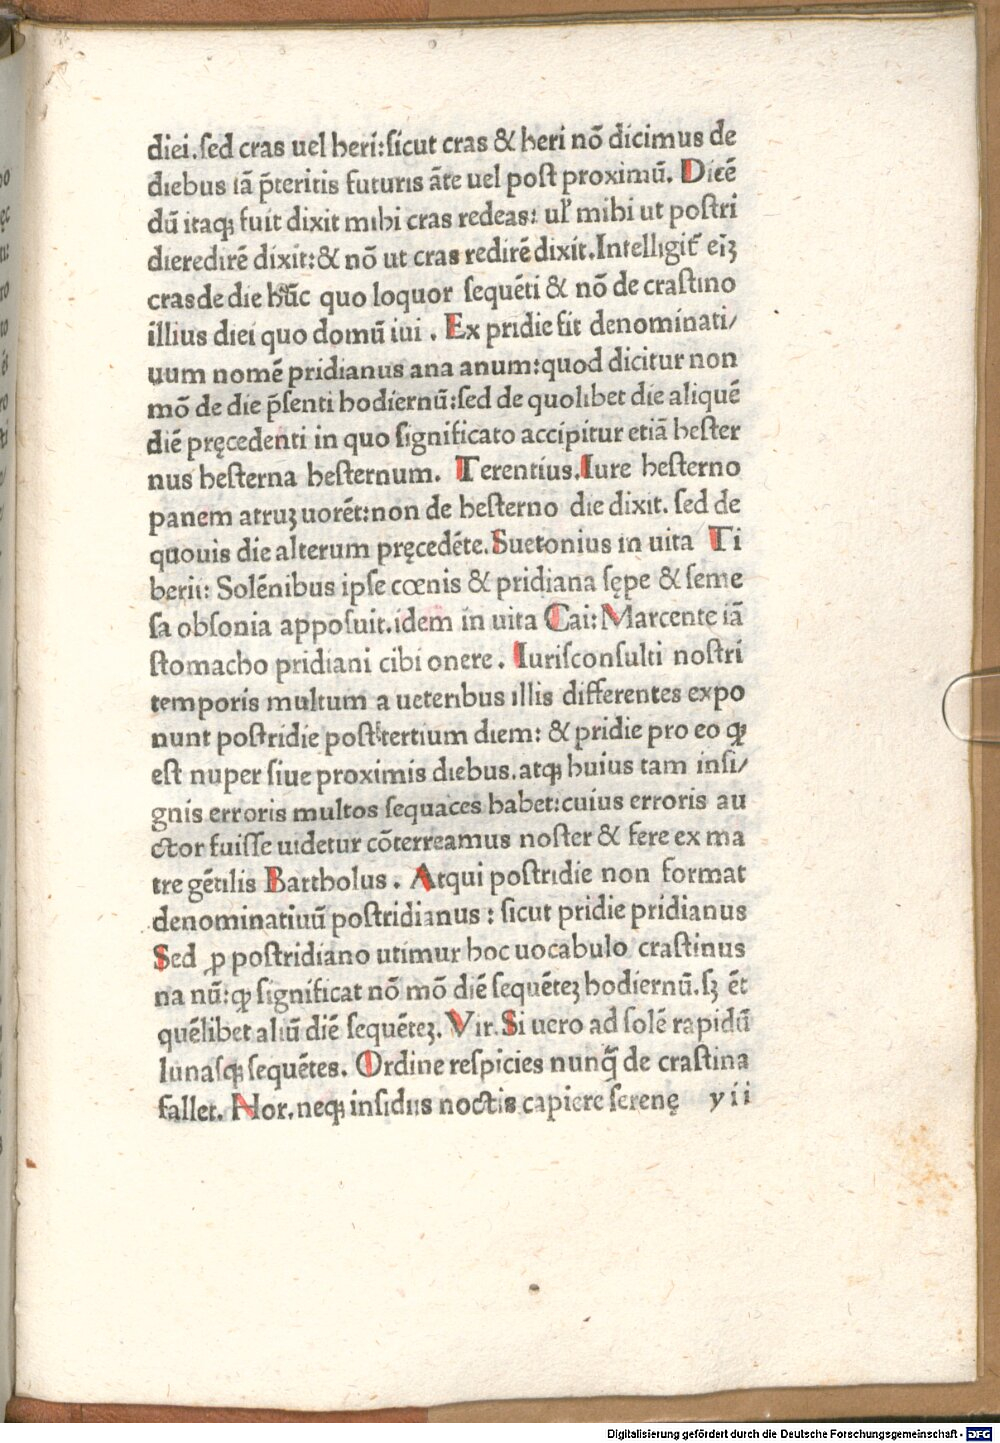 diei.ſed cras uel heri:ſicut cras & heri nõ dicimus de
diebus iã p̃teritis futuris ãte uel poſt proximũ. Dicẽ
dũ itaq; fuit dixit mihi cras redeas: ul' mihi ut poſtri
dieredirẽ dixit:& nõ ut cras redirẽ dixit.Intelligit̃ eiꝫ
cras de die hũc quo loquor ſequẽti & nõ de craſtino
illius diei quo domũ iui . Ex pridie fit denominati/
uum nomẽ pridianus ana anum:quod dicitur non
mõ de die p̃ſenti hodiernũ:ſed de quolibet die aliquẽ
diẽ pręcedenti in quo ſignificato accipitur etiã heſter
nus heſterna heſternum. Terentius.Iure heſterno
panem atruꝫ uorẽt:non de heſterno die dixit. ſed de
quouis die alterum pręcedẽte.Suetonius in uita Ti
berii: Solẽnibus ipſe cœnis & pridiana ſępe & ſeme
ſa obſonia appoſuit.idem in uita Cai: Marcente iã
ſtomacho pridiani cibi onere . Iuriſconſulti noſtri
temporis multum a ueteribus illis differentes expo
nunt poſtridie poſt tertium diem: & pridie pro eo ꝙ
eſt nuper ſiue proximis diebus.atq; huius tam inſi/
gnis erroris multos ſequaces habet:cuius erroris au
ctor fuiſſe uidetur cõterreamus noſter & fere ex ma
tre gẽtilis Bartholus . Atqui poſtridie non format
denominatiuũ poſtridianus : ſicut pridie pridianus
Sed ꝓ poſtridiano utimur hoc uocabulo craſtinus
na nũ:ꝙ ſignificat nõ mõ diẽ ſequẽteꝫ hodiernũ.ſꝫ ẽt
quẽlibet aliũ diẽ ſequẽteꝫ. Vir. Si uero ad ſolẽ rapidũ
lunaſq; ſequẽtes. Ordine reſpicies nunq̃ de craſtina
fallet. Nor.neq; inſidiis noctis capiere ſerenę y ii
Digitalisierung gefördert durch die Deutsche Forschungsgemeinschaft - DFG